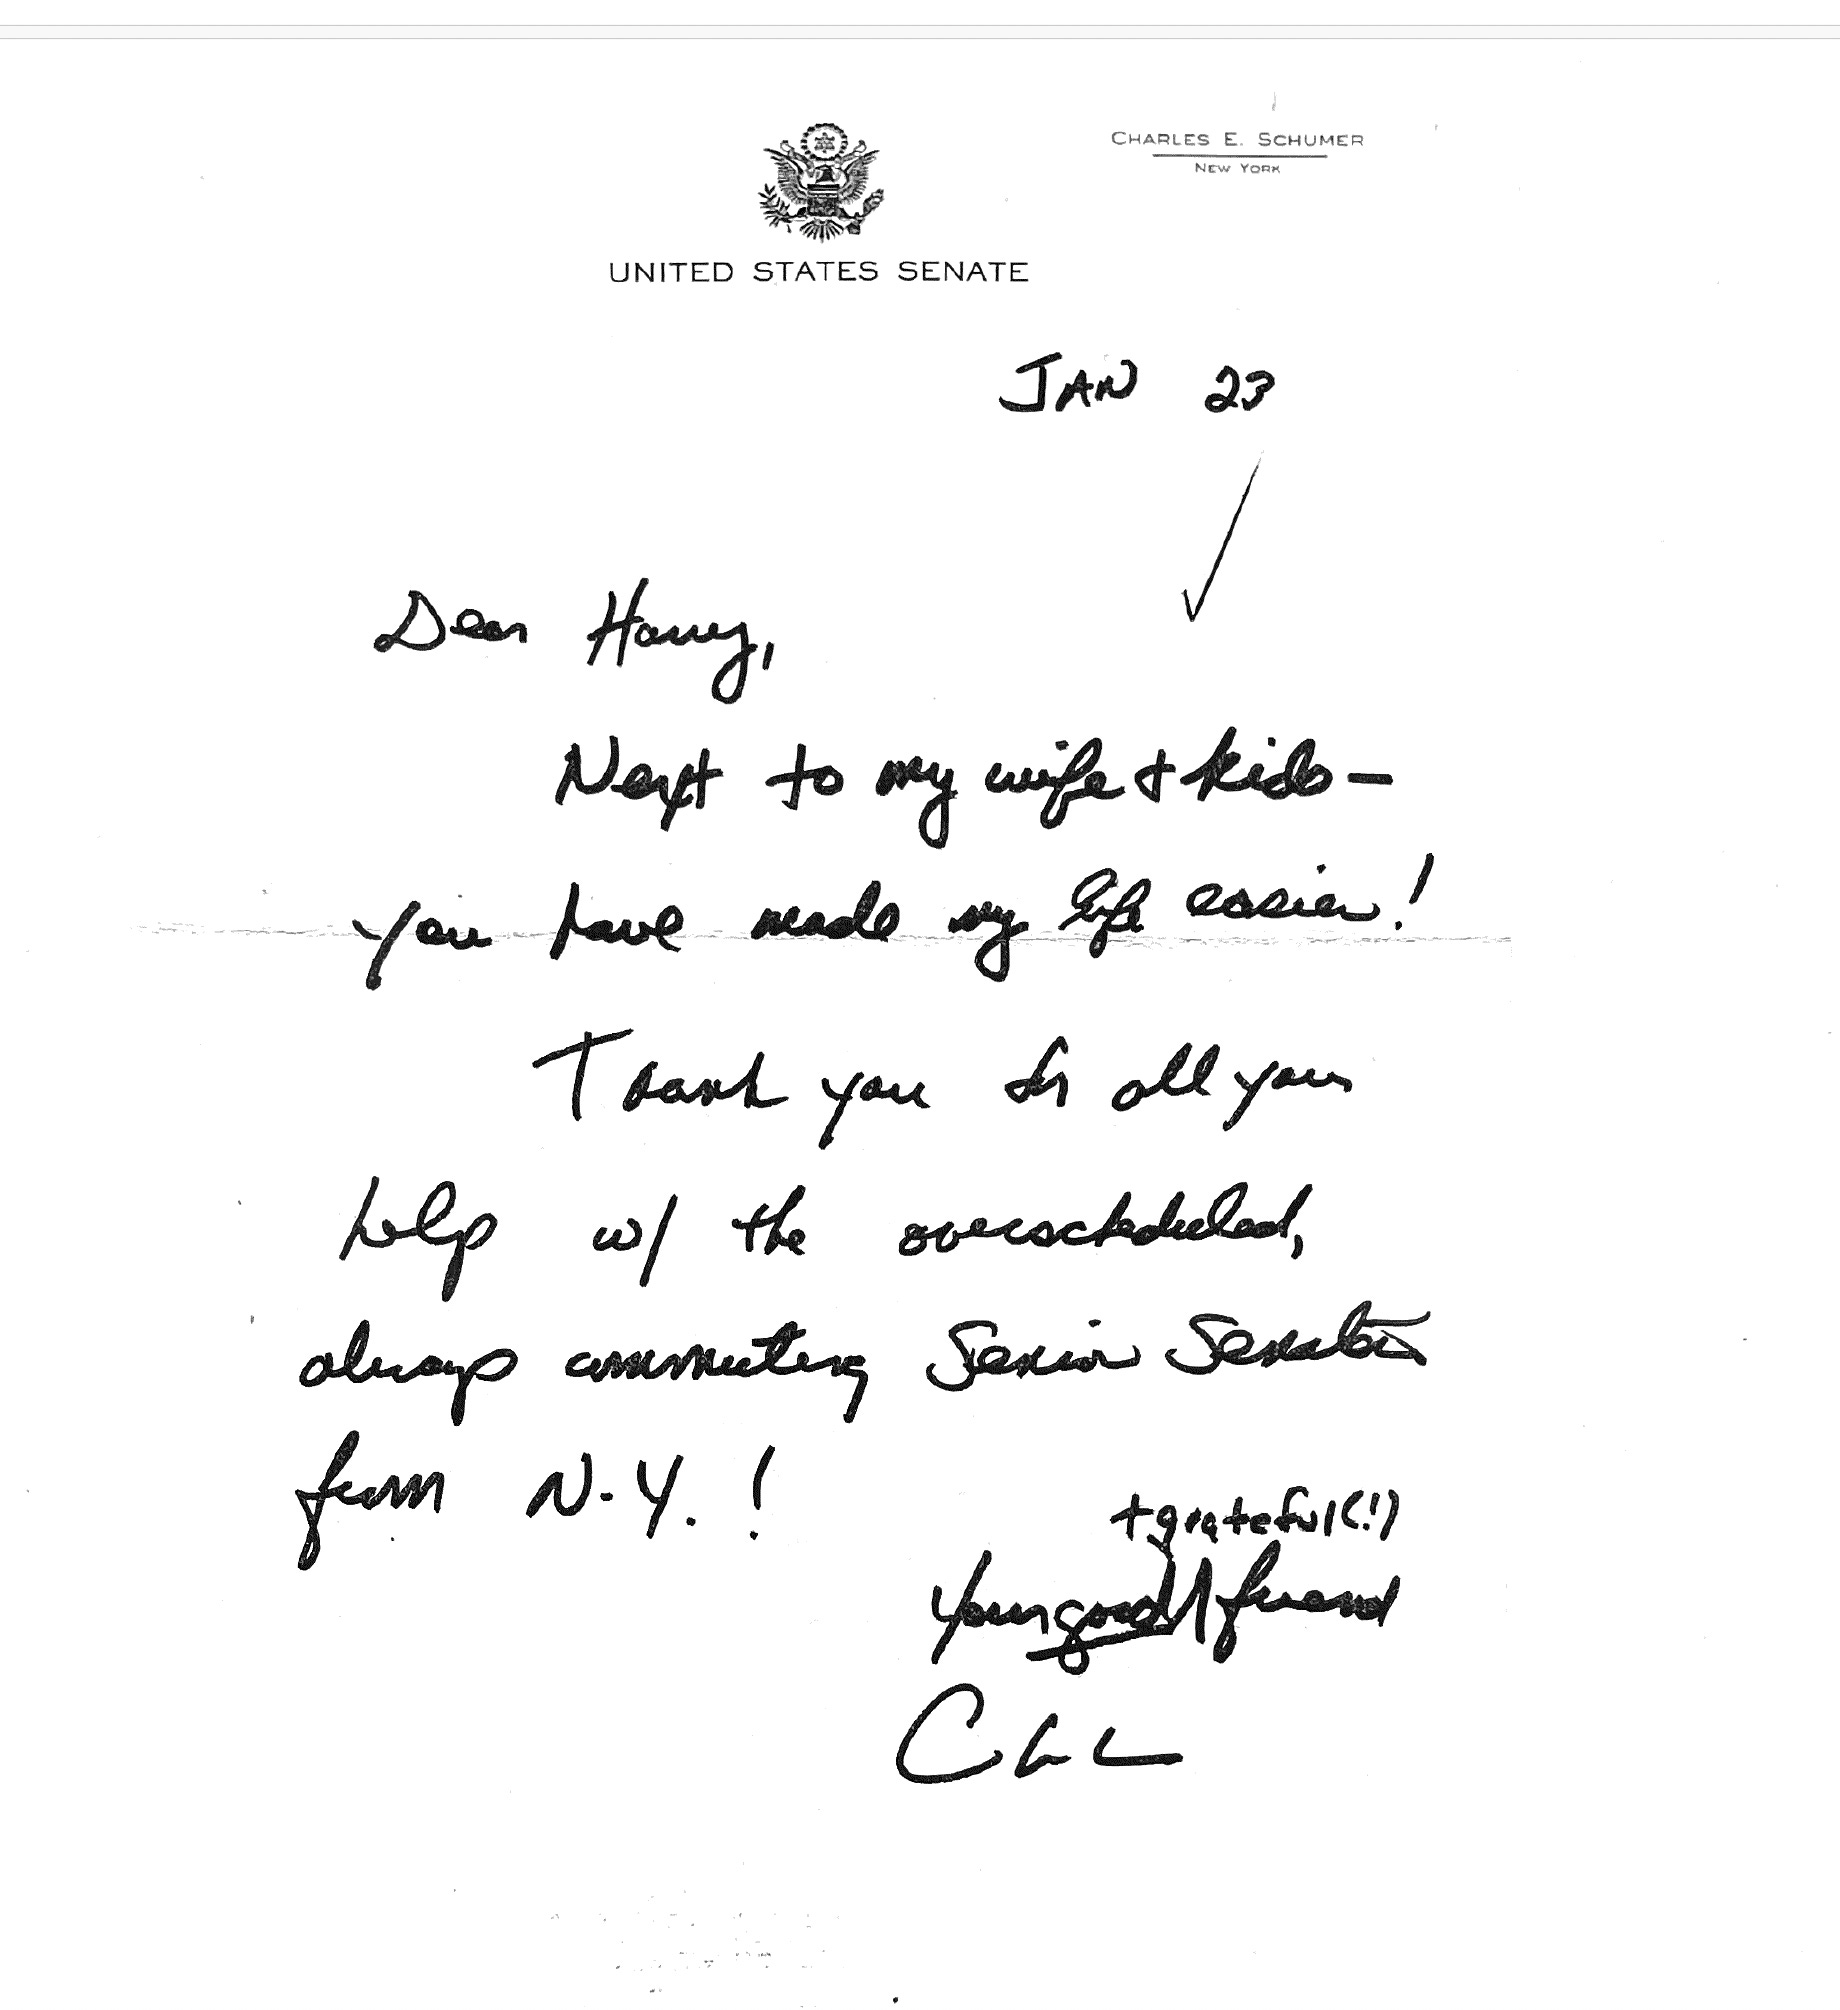 CHARLES E. SCHUMER
NEW YORK
UNITED STATES SENATE
JAN 23
Dear Harry,
Next to my wife + kids —
you have made my life easier!
Thank you for all your
help w/ the overscheduled,
always commuting Senior Senator
from N.Y. !
+ grateful (!)
Your good friend